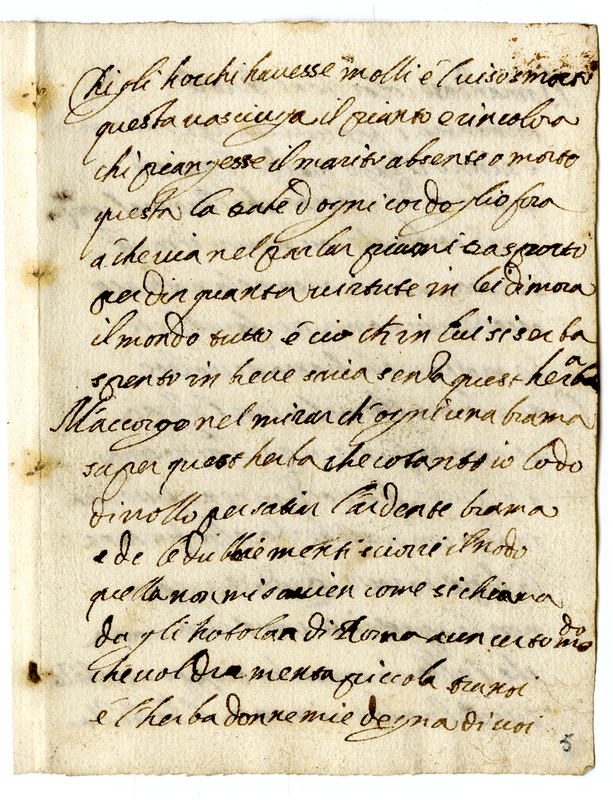 Chi gli hocchi havesse molli é l uiso smorto
questa n asciuga il pianto e rincolora
chi piangesse il marito absente o morto
questa la trahe d ogni cordoglio fora
á che uia nel parlar piu mi trasporto
per dir quanta uirtute in lei dimora
il mondo tutto é cio ch in lui si serba
spento in breve saria senza quest herba
M accorgo nel mirar ch ogn una brama
saper quest herba che cotanto io lodo
di uollo per satiar l ardente brama
e de le dubbie menti sciorre il nodo
quella non mi souien come si chiama
da gli hotolan di Roma a un certo modo
che uol dir menta piccola tra noi
é l herba donne mie degna di uoi
5